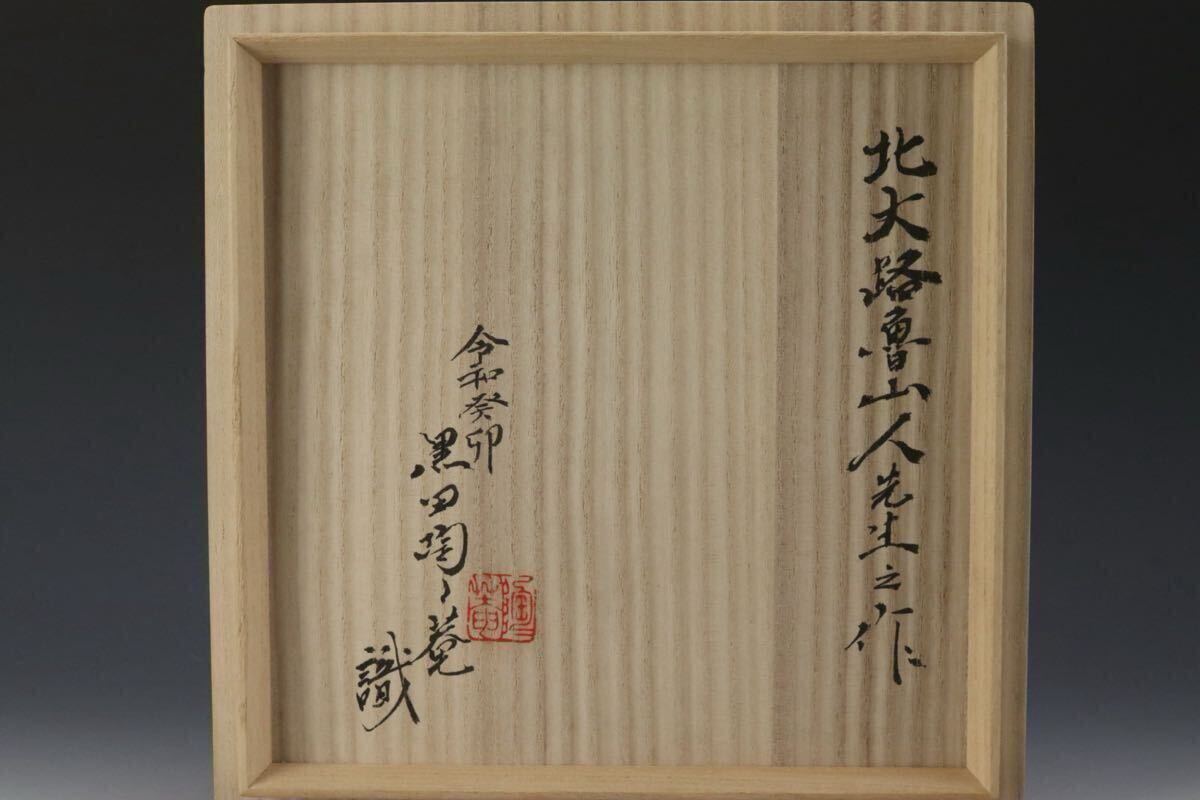 北大路魯山人先生之作
令和癸卯
黒田陶々菴
識
陶々菴